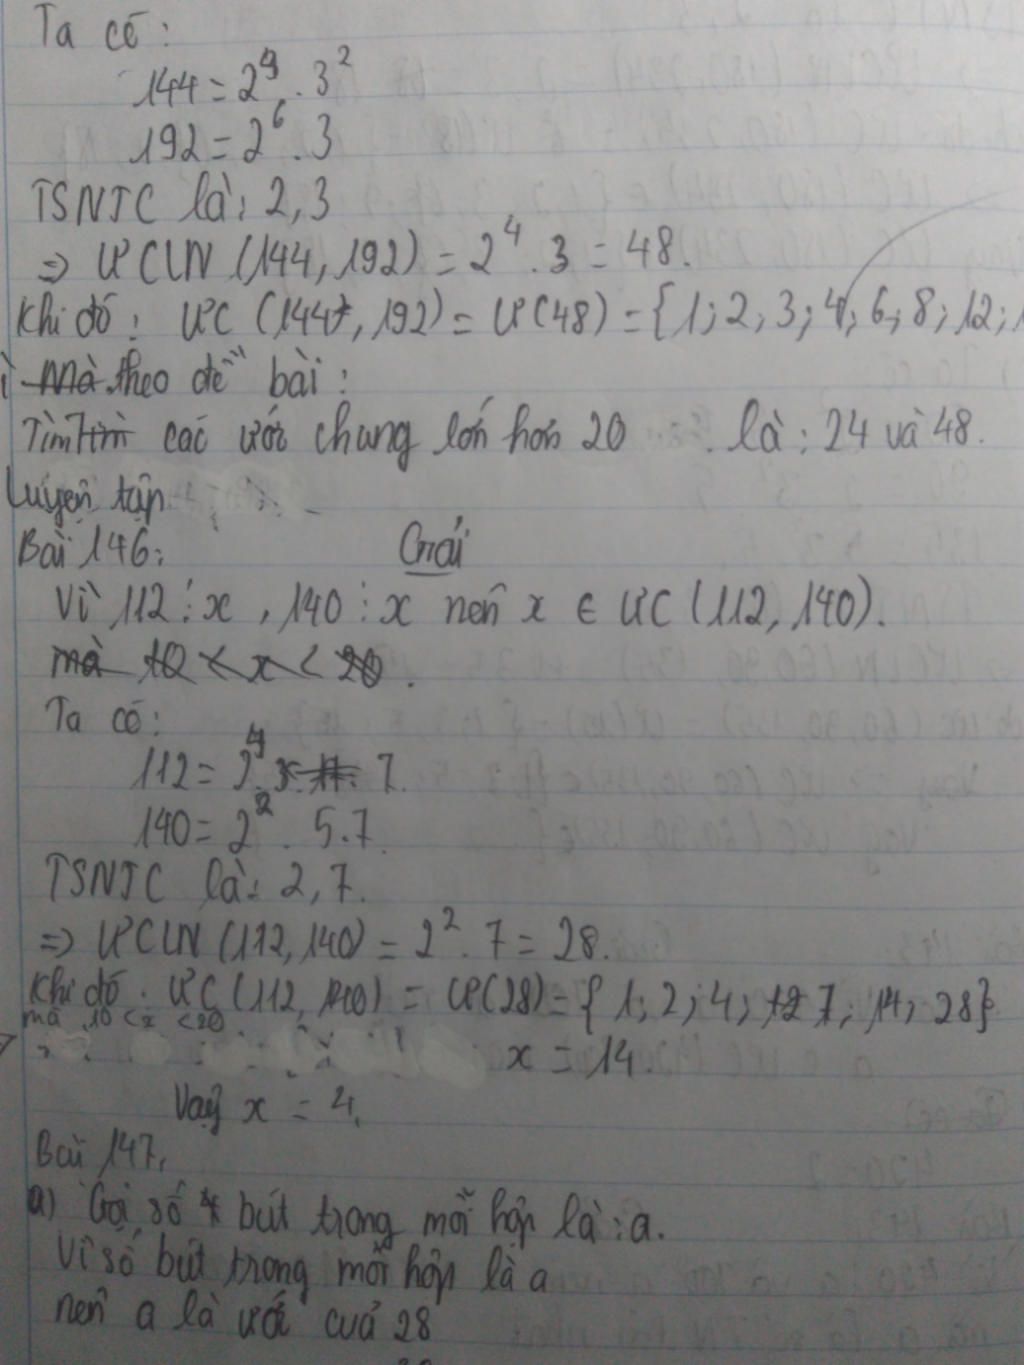 Ta có:
144 = 2^4 . 3^2
192 = 2^6 . 3
TSNTC là: 2, 3
=> ƯCLN (144, 192) = 2^4 . 3 = 48.
Khi đó: ƯC (144, 192) = Ư(48) = {1; 2; 3; 4; 6; 8; 12; 1
theo đề bài:
Tìm các ước chung lớn hơn 20 là: 24 và 48.
Luyện tập
Bài 146: Giải
Vì 112 ⋮ x, 140 ⋮ x nên x ∈ ƯC (112, 140).
mà 10 < x < 20.
Ta có:
112 = 2^4 . 7.
140 = 2^2 . 5.7
TSNTC là: 2, 7.
=> ƯCLN (112, 140) = 2^2 . 7 = 28.
Khi đó: ƯC (112, 140) = Ư(28) = {1; 2; 4; 7; 14; 28}
mà 10 < x < 20
x = 14.
Vậy x = 4.
Bài 147.
a) Gọi số bút trong mỗi hộp là: a.
Vì số bút trong mỗi hộp là a
nên a là ước của 28